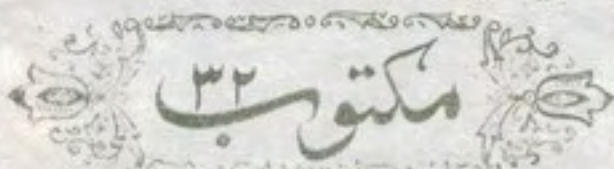 مکتوب ۳۲